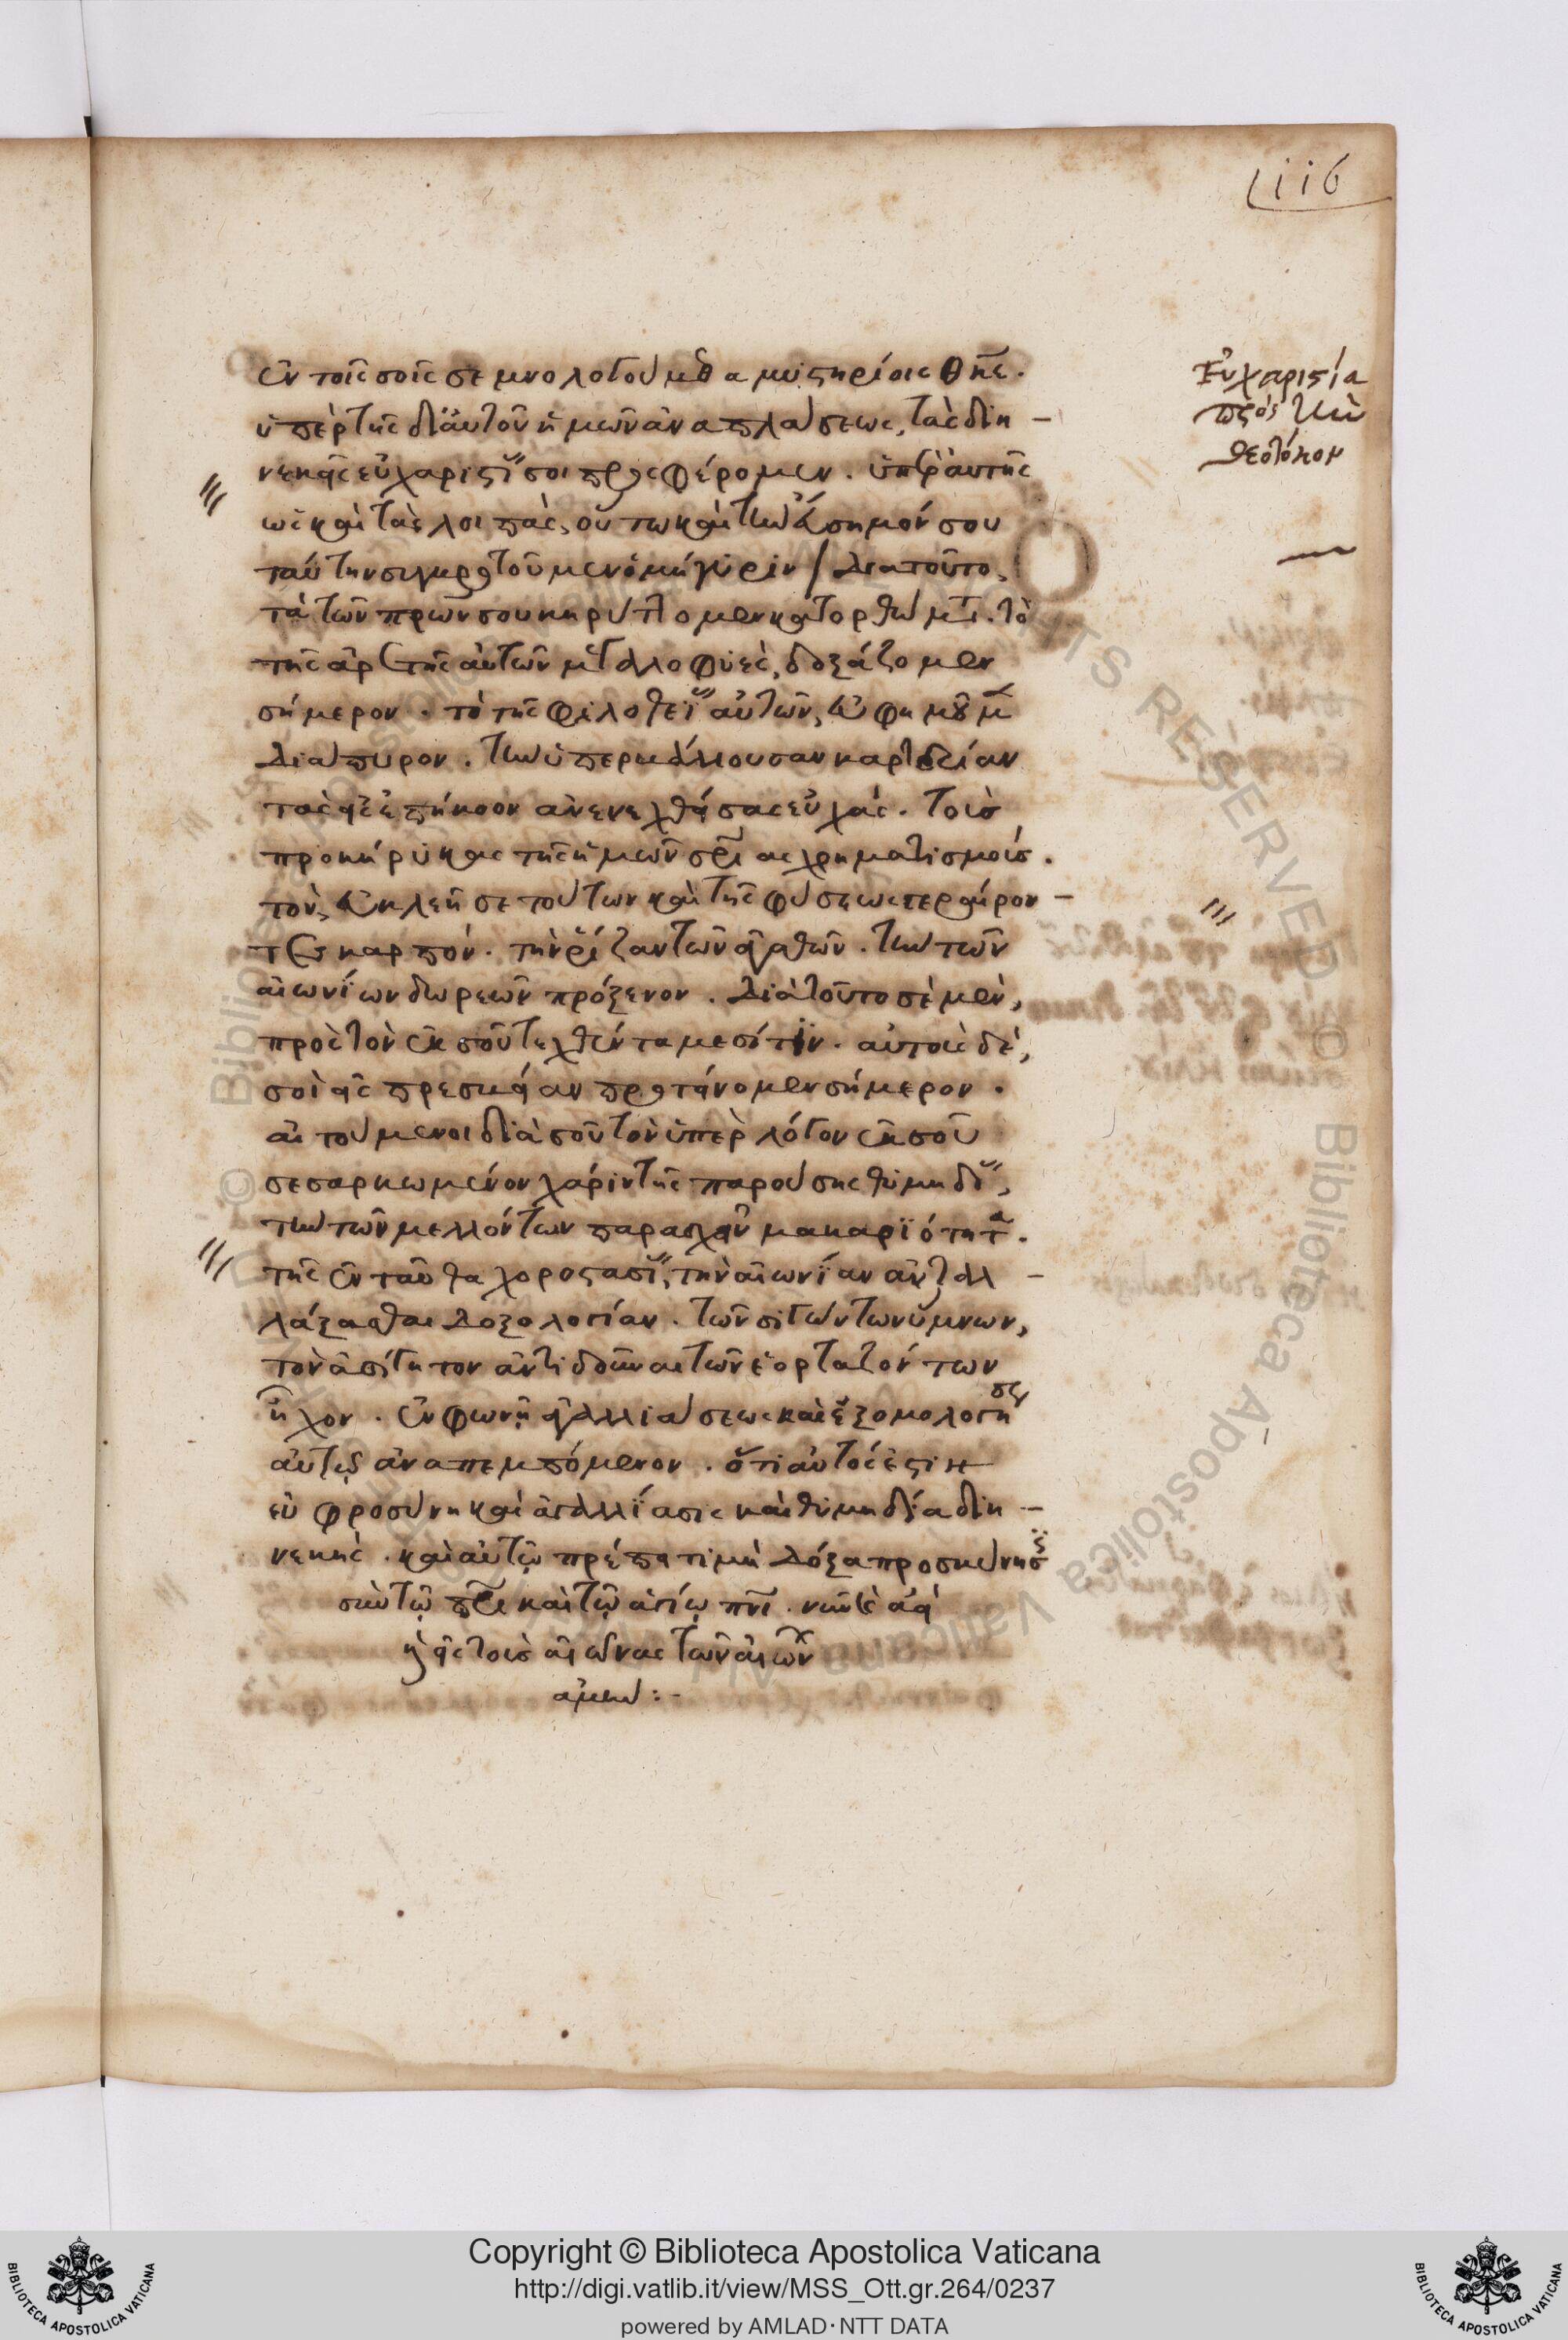 116
Εὐχαριστία
πρὸς τὴν
θεοτόκον
ἐν τοῖς σοῖς σεμνολογούμεθα μυστηρίοις
ὑπὲρ τῆς δι' αὐτοῦ ἡμῶν ἀναπλάσεως, τὰς διη-
νεκεῖς εὐχαριστίας σοι προσφέρομεν. ὑπὲρ αὐτῆς
ὡς καὶ τὰς λοιπὰς, οὕτω καὶ τὴν ἐπίσημόν σου
ταύτην συγκροτοῦμεν ὁμήγυριν / Διατοῦτο,
τὰ τῶν πρώων σου κηρύττομεν κατορθώματα. τὸ
τῆς ἀρετῆς αὐτῶν μεγαλοφυὲς, δοξάζομεν
σήμερον. τὸ τῆς φιλοθεΐας αὐτῶν, εὐφημοῦμεν
διάπυρον. τὴν ὑπερκάμνουσαν καρδίαν
τὰς εἰς ἐπήκοον ἀνενεχθείσας εὐχάς. τοὺς
προκήρυκας τῆς ἡμῶν σωτηρίας χρηματισμούς.
τὸν, εὐκλεῆ σε τούτων καὶ τῆς φύσεως περαίρον-
τα καρπόν. τὴν ῥίζαν τῶν ἀγαθῶν. τὴν τῶν
αἰωνίων δωρεῶν πρόξενον. Διὰ τοῦτο σὲ μὲν,
πρὸς τὸν ἐκ σοῦ τεχθέντα μεσίτιν. αὐτοὺς δὲ,
σοὶ εἰς πρεσβείαν προτείνομεν σήμερον.
αἰτούμενοι διὰ σοῦ τὸν ὑπὲρ λόγον ἐκ σοῦ
σεσαρκωμένον χάριν τῆς παρούσης θυμηδίας,
τὴν τῶν μελλόντων παρασχεῖν μακαριότητα.
τῆς ἐνταῦθα χοροστασίας, τὴν αἰωνίαν ἀνταλ-
λάξασθαι δοξολογίαν. τῶν σιγώντων ὕμνων,
τὸν ἀσίγητον ἀντιδοῦναι τῶν ἑορταζόντων
ἦχον. ἐν φωνῇ ἀγαλλιάσεως καὶ ἐξομολογήσεως
αὐτῷ ἀναπεμπόμενον. ὅτι αὐτός ἐστιν
εὐφροσύνη καὶ ἀγαλλίασις καὶ θυμηδία διη-
νεκής. καὶ αὐτῷ πρέπει τιμὴ δόξα προσκύνησις
σὺν τῷ πρὶ καὶ τῷ ἁγίῳ πνι. νῦν καὶ ἀεὶ
καὶ εἰς τοὺς αἰῶνας τῶν αἰώνων
ἀμήν:-
Copyright © Biblioteca Apostolica Vaticana
http://digi.vatlib.it/view/MSS_Ott.gr.264/0237
powered by AMLAD·NTT DATA
BIBLIOTECA APOSTOLICA VATICANA
BIBLIOTECA APOSTOLICA VATICANA